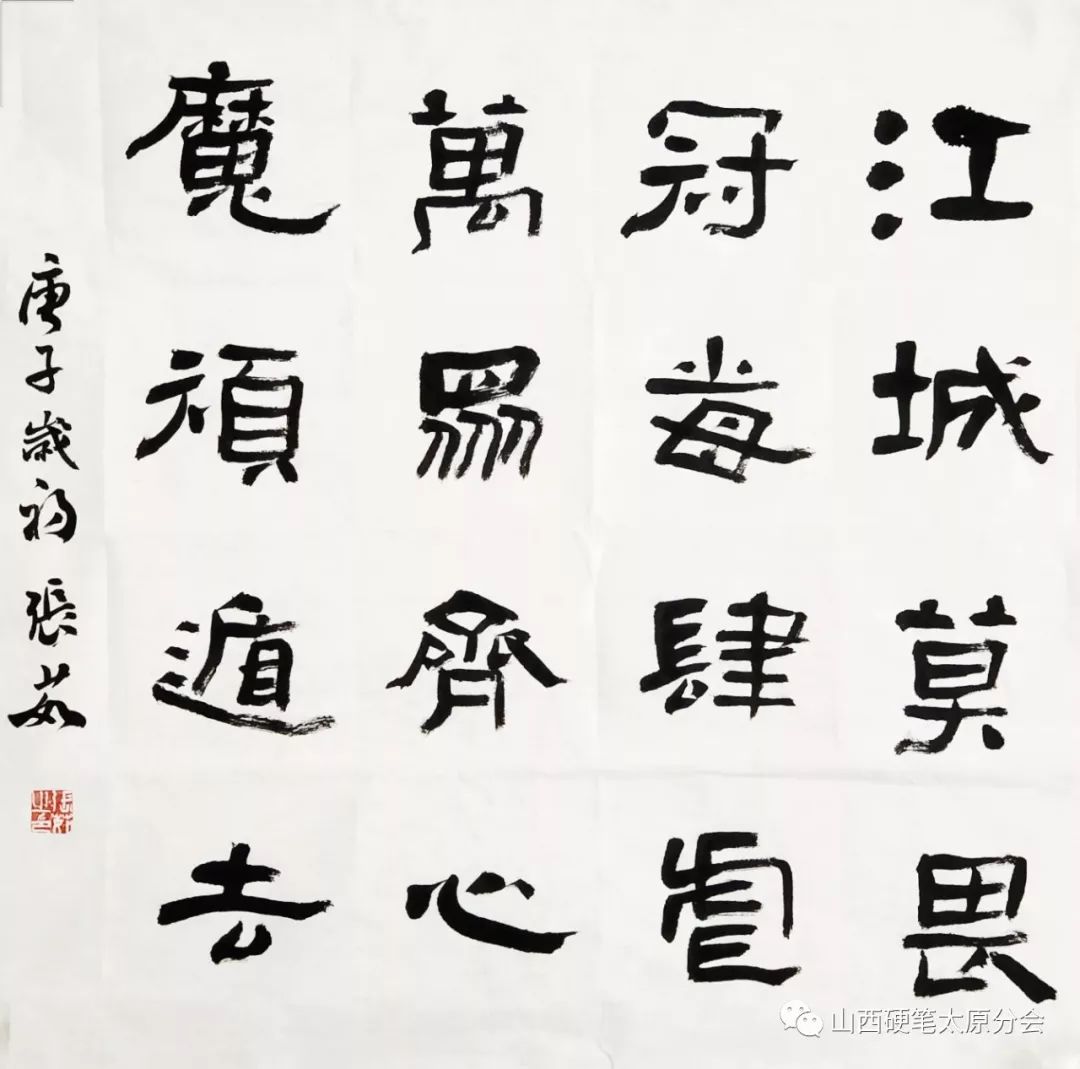 江城莫畏
冠毒肆虐
萬眾齊心
魔頑遁去
庚子歲初 張茹
山西硬笔太原分会